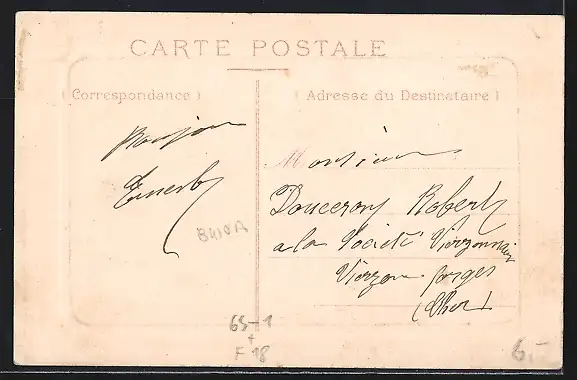 CARTE POSTALE
(Correspondance)
(Adresse du Destinataire)
Bonjour
Ernest
Monsieur
Douceron Robert
a la Société Vierzonnaise
Vierzon forges
(Cher)
65-1
+
F 18
6.-